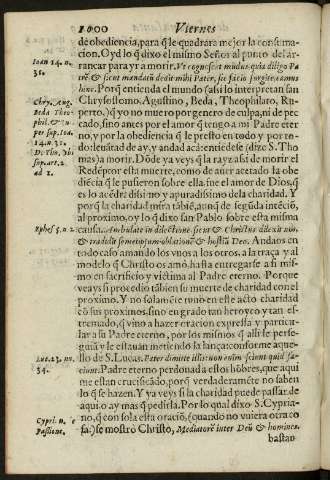 1000
Viernes
de obediencia, para q̃ le quadrara mejor la consuma-
cion. Oyd lo q̃ dixo el mismo Señor al punto del ar-
rancar para yr a morir. Vt cognoscat mũdus quia diligo Pa
trẽ & sicut mandatũ dedit mihi Pater, sic facio surgite eamus
hinc. Porq̃ entienda el mundo (assi lo interpretan san
Chrysostomo. Agustino, Beda, Theophilato, Ru-
perto.) q̃ yo no muero por genero de culpa, ni de pec
cado, sino antes por el amor q̃ tengo a mi Padre eter
no, y por la obediencia q̃ le presto en todo y por to-
do: leuãtad de ay, y andad acà: entiẽdese (dize S. Tho
mas) a morir. Dõde ya veys q̃ la rayz assi de morir el
Redẽptor esta muerte, como de auer acetado la obe
diẽcia q̃ le pusieron sobre ella. fue el amor de Dios, q̃
es lo acẽdradissimo y apuradissimo de la charidad. Y
porq̃ la charidad mira tãbiẽ, aunq̃ de segũda intẽciõ,
al proximo, oy lo q̃ dixo san Pablo sobre esta misma
causa. Ambulate in dilectione sicut & Christus dilexit nos,
& tradidit semetipsum oblationẽ & hostiã Deo. Andaos en
todo caso amando los vnos a los otros, a la traça y al
modelo q̃ Christo os amò, hasta entregarse a si mis-
mo en sacrificio y victima al Padre eterno. Porque
veays si procedio tãbien su muerte de charidad con el
proximo. Y no solamẽte tuuo en este acto charidad
cõ sus proximos, sino en grado tan heroyco y tan es-
tremado, q̃ vino a hazer oracion expressa y particu-
lar a su Padre eterno, por los mismos q̃ assi le perse-
guiã y le estauan metiendo la lança: conforme aque-
llo de S. Lucas. Pater dimitte illis: non enim sciunt quid fa-
ciunt. Padre eterno perdonad a estos hõbres, que aqui
me estan crucificãdo, porq̃ verdaderamẽte no saben
lo q̃ se hazen. Y ya veys si la charidad puede passar de
aqui. o ay mas q̃ pedirla. Por lo qual dixo S. Cypria-
no, q̃ con sola esta oraciõ, (quando no vuiera otra co
sa:) se mostrò Christo, Mediatorẽ inter Deũ & homines.
bastan
Ioan 14. n.
31.
Chry. Aug.
Beda Theo-
phil. & Ru-
per sup. Ioa.
14. n. 31.
D. Tho. ibi
sup. art. 2.
ad 2.
Ephes 5. n. 2.
Luc. 23. nu.
34.
Cypri. n. e
Passione.